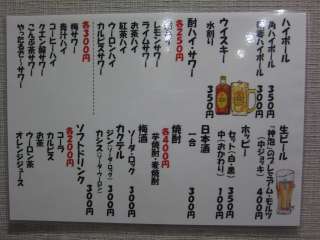 生ビール
「神泡」のプレミアム・モルツ
(中ジョッキ) 400円
ホッピー
セット(白・黒) 350円
中(おかわり)
日本酒
一合 300円
焼酎 各400円
芋焼酎・麦焼酎
梅酒
ソーダ・ロック 300円
カクテル
カシス(ソーダ・ウーロン) 300円
ソフトドリンク 各200円
コーラ
カルピス
お茶
ウーロン茶
オレンジジュース
ハイボール
角ハイボール 350円
ハイボール 300円
ウイスキー
水割り 350円
酎ハイ・サワー
各250円
レモンサワー
ライムサワー
お茶ハイ
紅茶ハイ
ウーロンハイ
カルピスサワー
各300円
梅サワー
青汁ハイ
コーヒーハイ
クエン酸サワー
こんぶ茶サワー